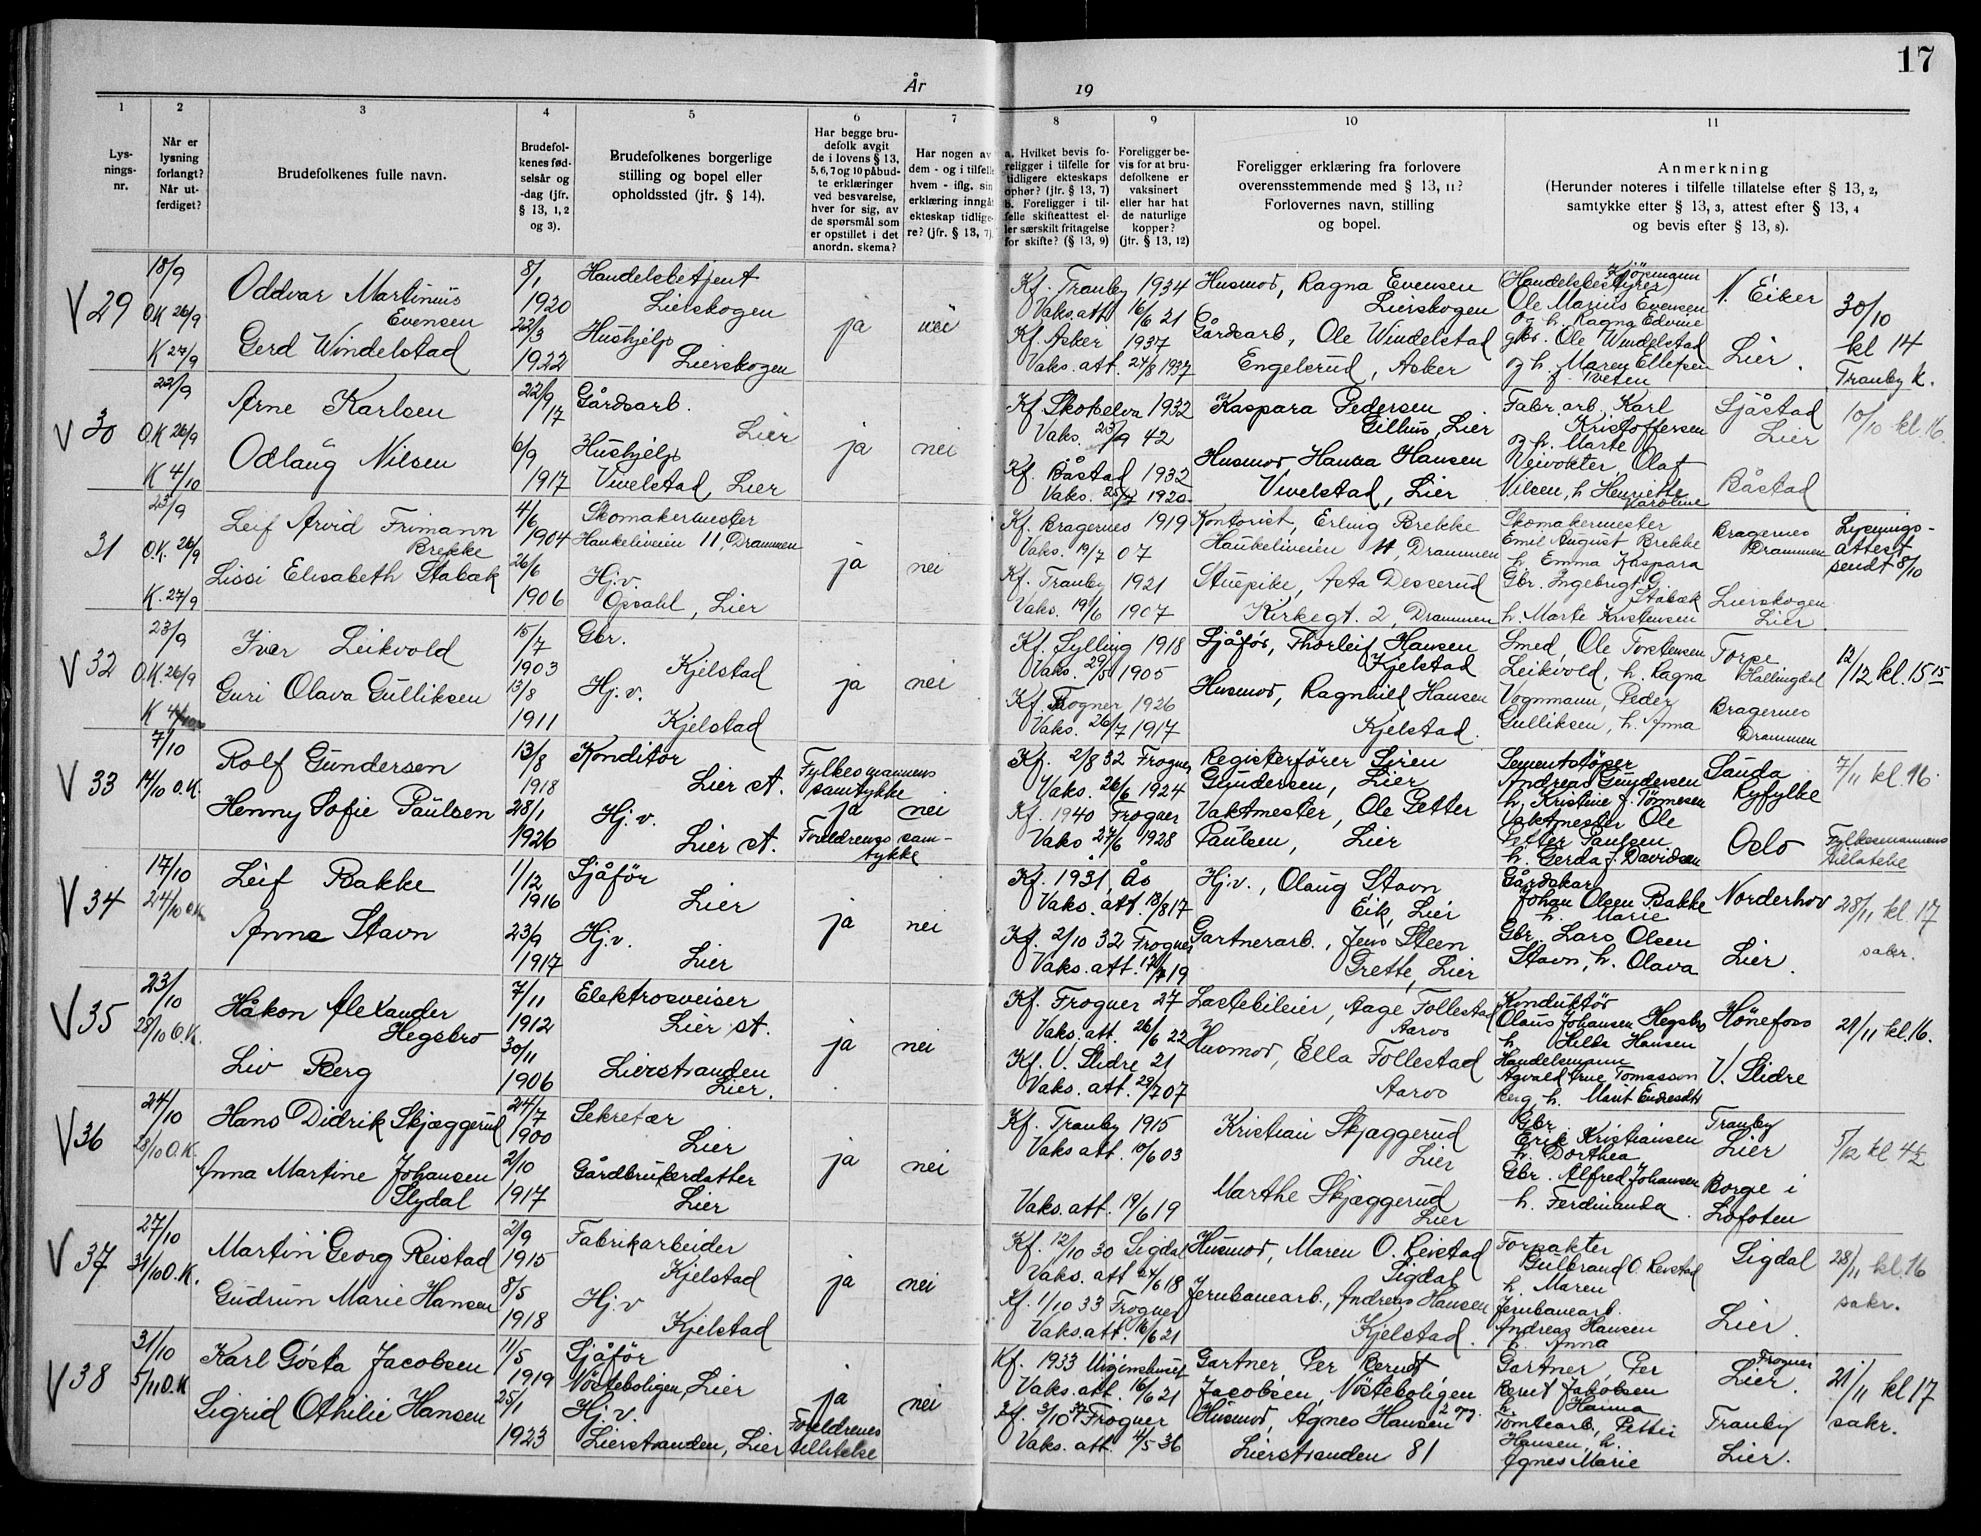 17
År 19
1 2 3 4 5 6 7 8 9 10 11
Lys-
nings-
nr.
Når er
lysning
forlangt?
Når ut-
ferdiget?
Brudefolkenes fulle navn.
Brudefol-
kenes fød-
selsår og
-dag (jfr.
§ 13, 1, 2
og 3).
Brudefolkenes borgerlige
stilling og bopel eller
opholdssted (jfr. § 14).
Har begge bru-
defolk avgit
de i lovens § 13,
5, 6, 7 og 10 påbud-
te erklæringer
ved besvarelse,
hver for sig, av
de spørsmål som
er opstillet i det
anordn. skema?
Har nogen av
dem - og i tilfelle
hvem - iflg. sin
erklæring inngåt
ekteskap tidlige-
re? (jfr. § 13, 7).
a. Hvilket bevis fo-
religger i tilfelle for
tidligere ekteskaps
ophør? (jfr. § 13, 7)
b. Foreligger i til-
felle skifteattest el-
ler særskilt fritagelse
for skifte? (§ 13, 9)
Foreligger be-
vis for at bru-
defolkene er
vaksinert
eller har hat
de naturlige
kopper?
(jfr. § 13, 12)
Foreligger erklæring fra forlovere
overensstemmende med § 13, 11?
Forlovernes navn, stilling
og bopel.
Anmerkning
(Herunder noteres i tilfelle tillatelse efter § 13, 2,
samtykke efter § 13, 3, attest efter § 13, 4
og bevis efter § 13, 8).
V 29
18/9
O.K 26/9
K 27/9
Oddvar Martinius
Evensen
Gerd Windelstad
8/1
1920
22/3
1922
Handelsbetjent
Lierskogen
Hushjelp
Lierskogen
ja
nei
Kf. Tranby 1934
Vaks. att. 16/6 21
Kf. Asker 1937
Vaks. att. 24/8 1937
Husmor, Ragna Evensen
Lierskogen
Gårdsarb, Ole Windelstad
Engelsrud, Asker
Kjøpmann
(Handelsbestyrer)
Ole Marius Evensen
og h. Ragna Edvine
gbr. Ole Windelstad
og h. Maren Ellefsen
f. Tveten
N. Eiker
Lier.
30/10
kl 14
Tranby k.
V 30
22/9
O.K 26/9
K 4/10
Arne Karlsen
Odlaug Nilsen
22/9
17
6/9
1917
Gårdsarb.
Lier
Hushjelp
Vivelstad, Lier
ja
nei
Kf. Skotselva 1932
Vaks. 23/9 42
Kf. Båstad 1932
Vaks. 1920
Kaspara Pedersen
Gilhus, Lier
Husmor Hanna Hansen
Vivelstad, Lier
Fabr. arb. Karl
Kristoffersen
og h. Marte
Veivokter, Olaf
Nilsen, h Henriette
Karoline
Sjåstad
Lier
Båstad
10/10 kl. 16.
31
23/9
O.K. 26/9
K. 27/9
Leif Arvid Frimann
Brekke
Lissi Elisabeth Stabæk
4/6
1904
26/6
1906
Skomakermester
Haukeliveien 11, Drammen
Hj.v.
Opsahl, Lier
ja
nei
Kf. Bragernes 1919
Vaks. 19/7 07
Kf. Tranby 1921
Vaks. 19/6 1907
Kontorist, Erling Brekke
Haukeliveien 11, Drammen
Stuepike, Asta Desserud
Kirkegt. 2, Drammen
Skomakermester
Emil August Brekke
h. Emma Kaspara
Gbr. Ingebrigt G.
Stabæk
h. Marte Kristensen
Bragernes
Drammen
Lierskogen
Lier
Lysnings-
attest
sendt 8/10
V 32
23/9
O.K. 26/9
K 4/10
Iver Leikvold
Guri Olava Gulliksen
15/7
1903
13/8
1911
Gbr.
Kjelstad
Hj.v.
Kjelstad
ja
nei
Kf. Sylling 1918
Vaks. 29/5 1905
Kf. Frogner 1926
Vaks. 26/7 1917
Sjåfør, Thorleif Hansen
Kjelstad
Husmor, Ragnhild Hansen
Kjelstad.
Smed, Ole Torstensen
Leikvold, h. Ragna
Vognmann, Peder
Gulliksen, h. Anna
Torpe
Hallingdal
Bragernes
Drammen
12/12 kl. 15 15
V 33
7/10
17/10 O.K.
Rolf Gundersen
Henny Sofie Paulsen
13/8
1918
28/1
1926
Konditor
Lier st.
Hj.v.
Lier st.
Fylkesmannens
samtykke
ja
nei
Foreldrenes sam-
tykke
Kf. 2/8 32 Frogner
Vaks. 26/6 1924
Kf. 1940 Frogner
Vaks 27/6 1928
Registerfører Siren
Gundersen, Lier
Vaktmester, Ole Petter
Paulsen, Lier
Sementstøper
Andreas Gundersen
h. Kristine f. Tønnesen
Vaktmester Ole
Petter Paulsen
h. Gerda f. Davidsen
Sauda
Ryfylke
Oslo
7/11 kl. 16.
Fylkesmannens
tillatelse
V 34
17/10
24/10 O.K.
Leif Bakke
Anna Stavn
1/12
1916
23/9
1917
Sjåfør
Lier
Hj.v.
Lier
ja
nei
Kf. 1931, Ås
Vaks. att. 18/8 17
Kf. 2/10 32 Frogner
Vaks. att. 19
Hj.v., Olaug Stavn
Eik, Lier
Gartnerarb., Jens Steen
Grette, Lier
Gårdskar
Johan Olsen Bakke
h. Marie
Gbr. Lars Olsen
Stavn, h. Olava
Norderhov
Lier.
28/11 kl. 17
sakr.
V 35
23/10
28/10 O.K.
Håkon Alexander
Hegsbro
Liv Berg
7/11
1912
30/11
1906
Elektrosveiser
Lier st.
Lierstranden
Lier.
ja
nei
Kf. Frogner 27
Vaks. att. 26/6 22
Kf. V. Slidre 21
Vaks. att. 29/7 07
Lastebileier, Aage Follestad
Aaros
Husmor, Ella Follestad
Aaros
Konduktør
Olaus Johansen Hegsbro
h. Hilda Hansen
Handelsmann
Agvald Arne Tomasson
Berg h. Marit Endresdtr
Hønefoss
V. Slidre
21/11 kl. 16.
V 36
24/10
28/10 O.K.
Hans Didrik Skjæggerud
Anna Martine Johansen
Slydal
24/7
1900
2/10
1917
Sekretær
Lier
Gårdbrukerdatter
Lier
ja
nei
Kf. Tranby 1915
Vaks att. 10/6 03
Vaks. att. 19/6 19
Kristian Skjæggerud
Lier
Marthe Skjæggerud
Lier
Gbr.
Erik Kristiansen
h. Dorthea
Gbr. Alfred Johansen
h. Ferdinanda
Tranby
Lier
Borge i
Lofoten
5/12 kl 4½
V 37
27/10
31/10 O.K.
Martin Georg Reistad
Gudrun Marie Hansen
2/9
1915
8/5
1918
Fabrikarbeider
Kjelstad
Hj.v
Kjelstad
ja
nei
Kf. 12/10 30 Sigdal
Vaks. att 24/6 18
Kf. 1/10 33 Frogner
Vaks. att. 16/6 21
Husmor, Maren O. Reistad
Sigdal
Jernbanearb., Andreas Hansen
Kjelstad.
Forpakter
Gulbrand O. Reistad
h. Maren
Jernbanearb.
Andreas Hansen
h. Anna
Sigdal
Lier.
28/11 kl. 16
sakr.
V 38
31/10
5/11 O.K
Karl Gösta Jacobsen
Sigrid Othilie Hansen
11/5
1919
25/1
1923
Sjåfør
Nøsteboligen, Lier
Hj.v.
Lierstranden, Lier
ja
nei
Foreldrenes
tillatelse
Kf. 1933
Vaks. att. 16/6 21
Kf. 3/10 37 Frogner
Vaks. att. 4/5 36
Gartner Per Berndt
Jacobsen, Nøsteboligen
Husmor, Agnes Hansen
Lierstranden 81
Gartner Per
Bernt Jakobsen
h. Hanna
Tomtearb, Petter
Hansen, h.
Agnes Marie
Frogner
Lier.
Tranby
Lier.
21/11 kl 17
sakr.